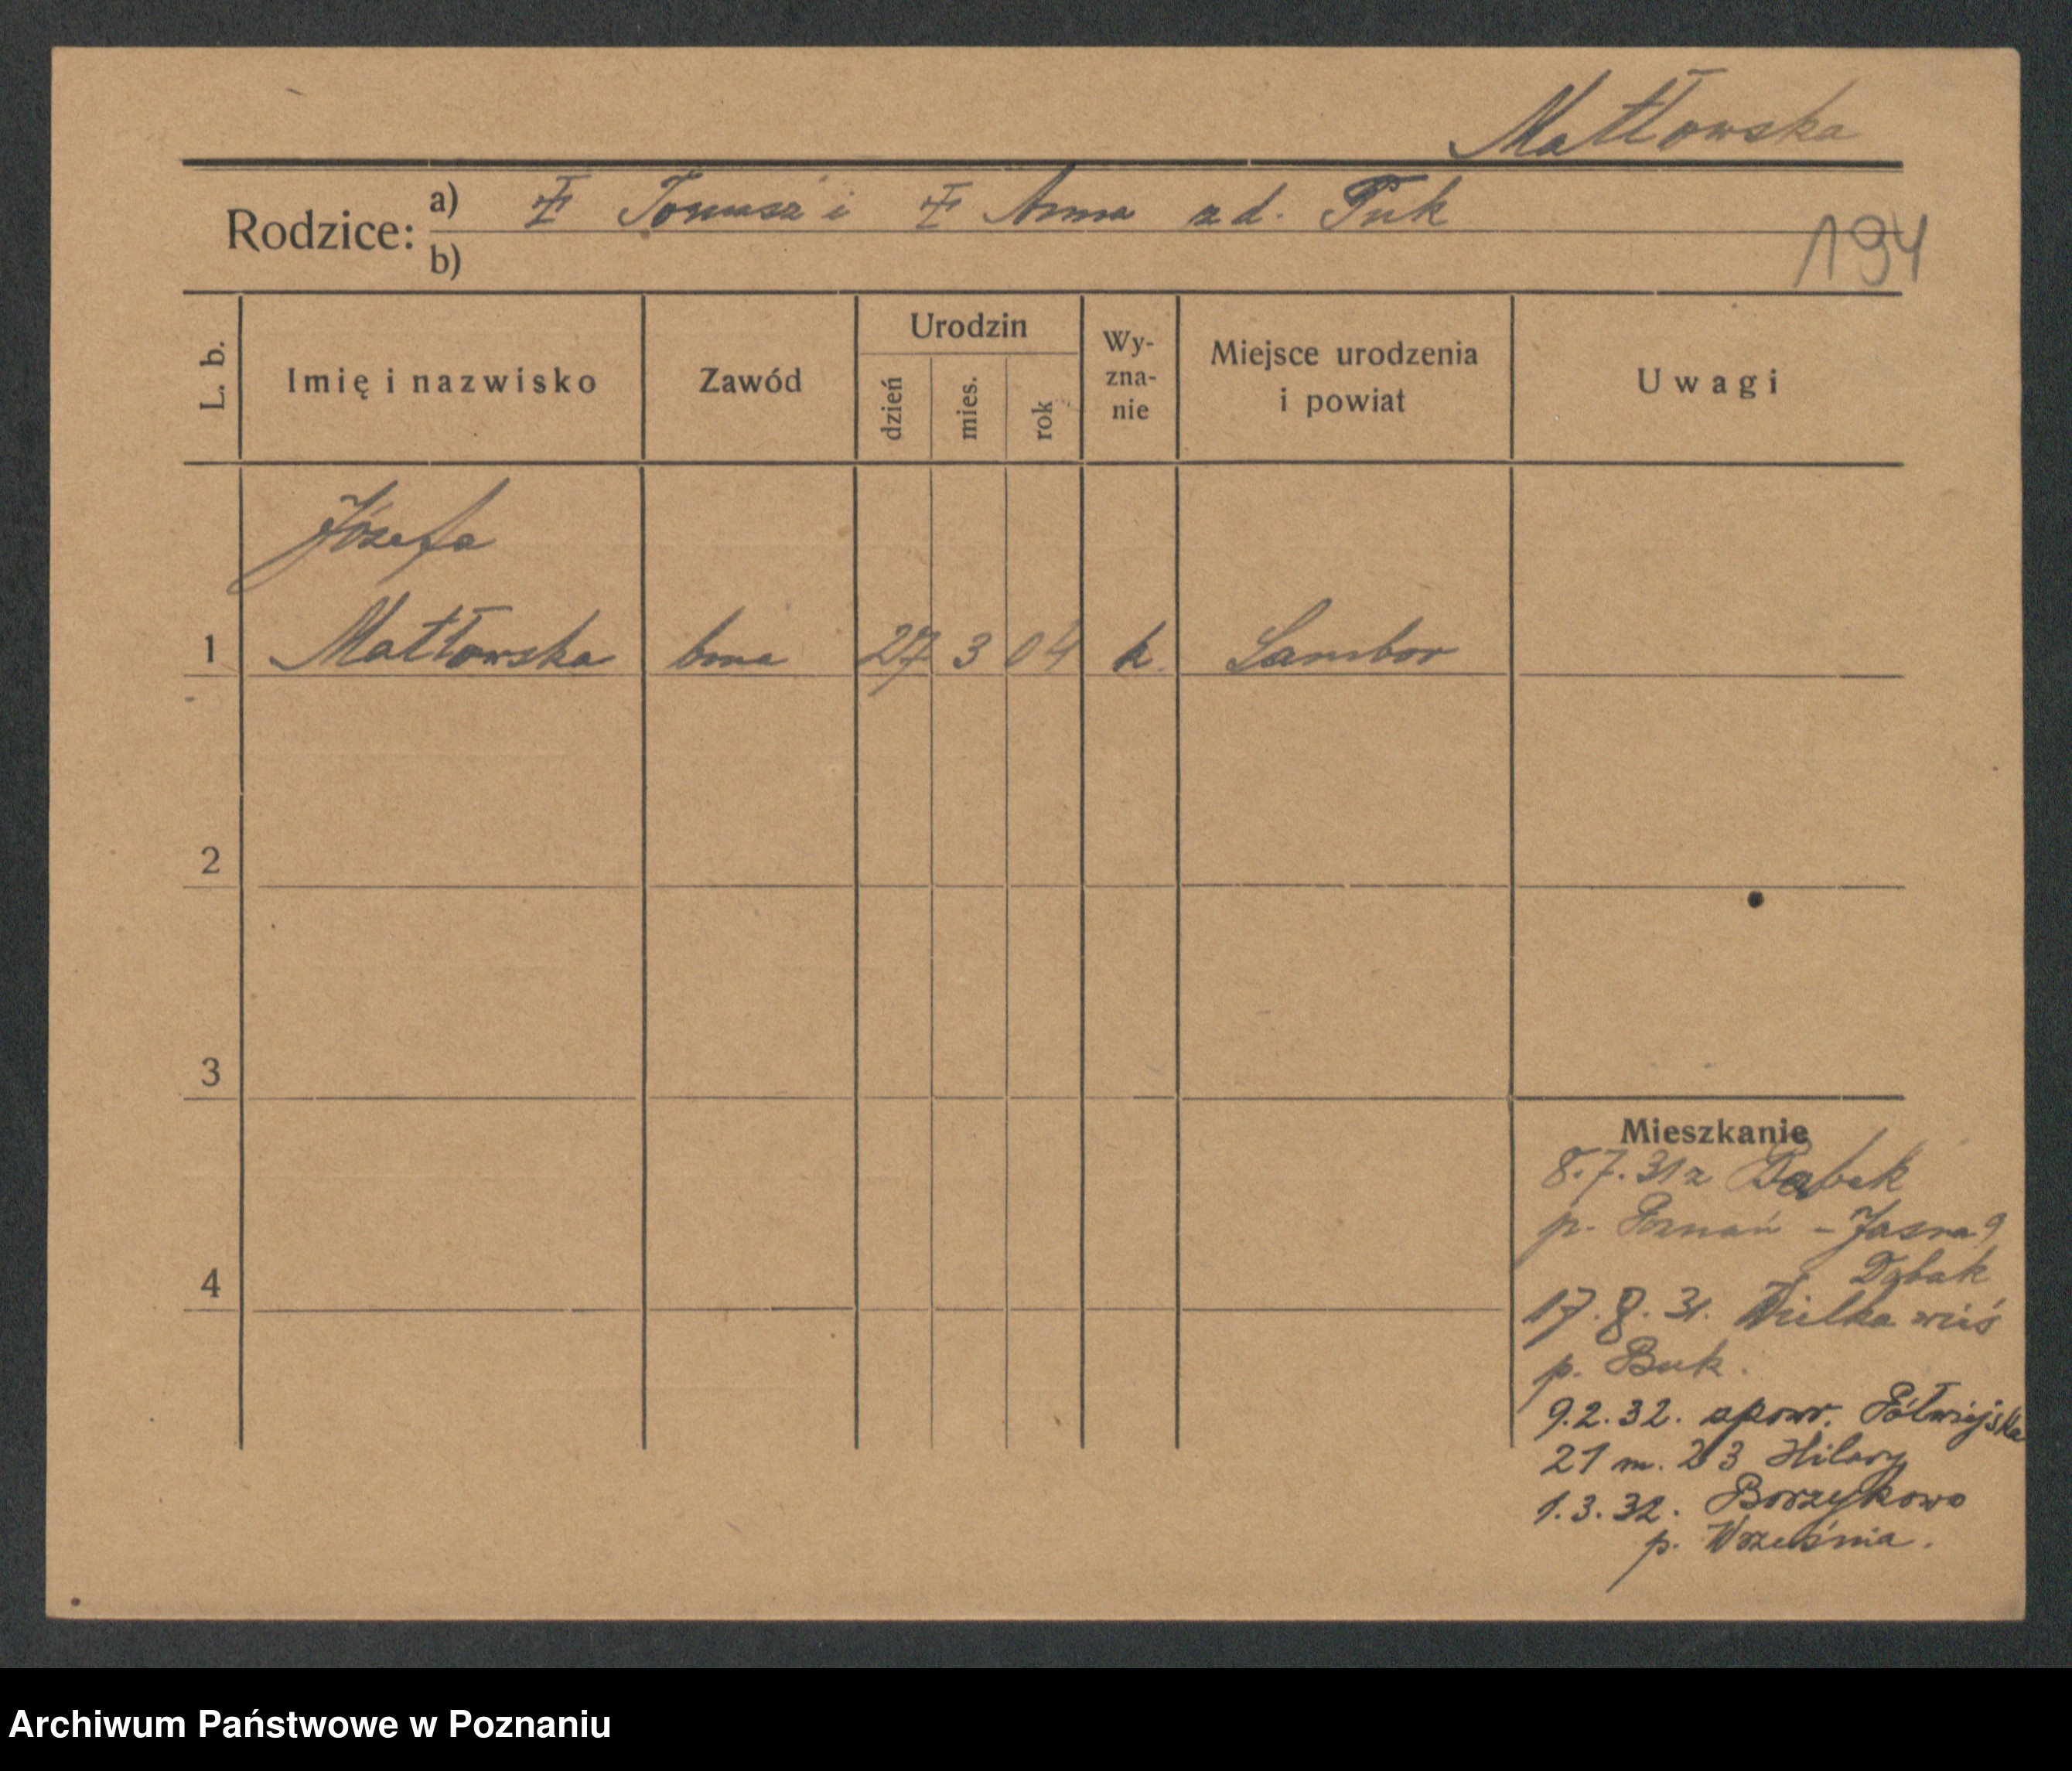 Matłowska
Rodzice: a) Tomasz i Anna zd. Puk
b)
194
L. b.
Imię i nazwisko
Zawód
Urodzin
dzień
mies.
rok
Wy-
zna-
nie
Miejsce urodzenia
i powiat
Uwagi
Józefa
1 Matłowska bona 27 3 04 k. Sambor
2
3
4
Mieszkanie
8.7.31 z Dąbek
p. Poznań - Jasna 9
Dąbak
17.8.31. Wielka wieś
p. Buk.
9.2.32. spowr. Półwiejska
21 m. 23 Hilary
1.3.32. Borzykowo
p. Września.
Archiwum Państwowe w Poznaniu